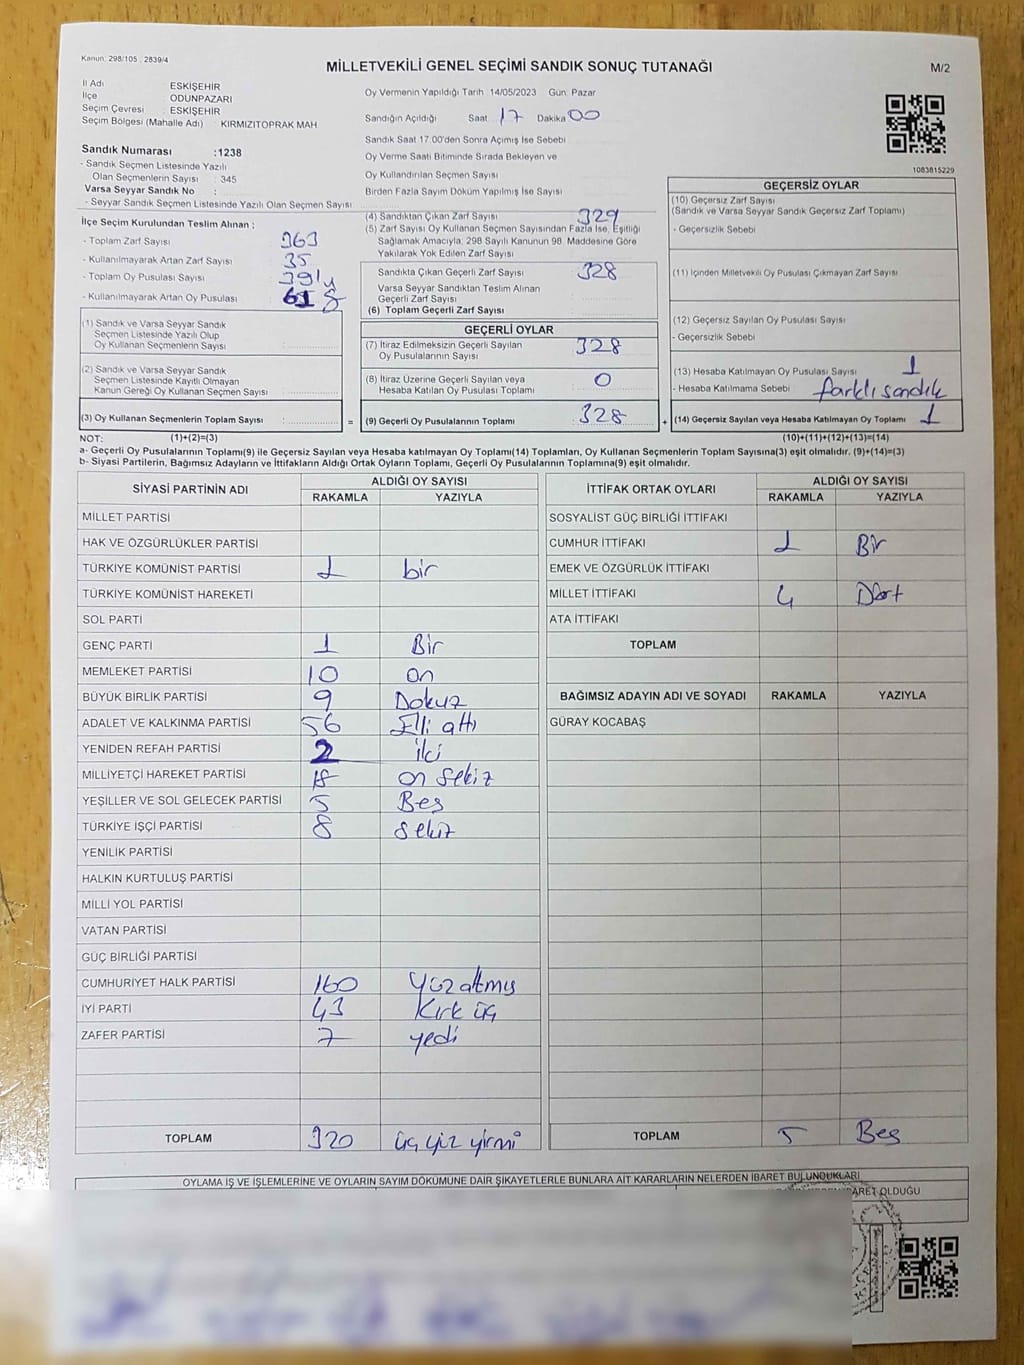 Kanun: 298/105 , 2839/4
MİLLETVEKİLİ GENEL SEÇİMİ SANDIK SONUÇ TUTANAĞI
M/2
İl Adı : ESKİŞEHİR
İlçe : ODUNPAZARI
Seçim Çevresi : ESKİŞEHİR
Seçim Bölgesi (Mahalle Adı) : KIRMIZITOPRAK MAH
Sandık Numarası :1238
- Sandık Seçmen Listesinde Yazılı
Olan Seçmenlerin Sayısı : 345
Varsa Seyyar Sandık No :
- Seyyar Sandık Seçmen Listesinde Yazılı Olan Seçmen Sayısı :
Oy Vermenin Yapıldığı Tarih 14/05/2023 Gün: Pazar
Sandığın Açıldığı Saat 17 Dakika 00
Sandık Saat 17.00'den Sonra Açımış İse Sebebi
Oy Verme Saati Bitiminde Sırada Bekleyen ve
Oy Kullandırılan Seçmen Sayısı
Birden Fazla Sayım Döküm Yapılmış İse Sayısı
1083815229
İlçe Seçim Kurulundan Teslim Alınan ;
- Toplam Zarf Sayısı 363
- Kullanılmayarak Artan Zarf Sayısı 35
- Toplam Oy Pusulası Sayısı
- Kullanılmayarak Artan Oy Pusulası
(1) Sandık ve Varsa Seyyar Sandık
Seçmen Listesinde Yazılı Olup
Oy Kullanan Seçmenlerin Sayısı :
(2) Sandık ve Varsa Seyyar Sandık
Seçmen Listesinde Kayıtlı Olmayan
Kanun Gereği Oy Kullanan Seçmen Sayısı :
(3) Oy Kullanan Seçmenlerin Toplam Sayısı : =
(4) Sandıktan Çıkan Zarf Sayısı 329
(5) Zarf Sayısı Oy Kullanan Seçmen Sayısından Fazla İse, Eşitliği
Sağlamak Amacıyla; 298 Sayılı Kanunun 98. Maddesine Göre
Yakılarak Yok Edilen Zarf Sayısı
Sandıkta Çıkan Geçerli Zarf Sayısı 328
Varsa Seyyar Sandıktan Teslim Alınan
Geçerli Zarf Sayısı
(6) Toplam Geçerli Zarf Sayısı
GEÇERLİ OYLAR
(7) İtiraz Edilmeksizin Geçerli Sayılan
Oy Pusulalarının Sayısı 328
(8) İtiraz Üzerine Geçerli Sayılan veya
Hesaba Katılan Oy Pusulası Toplamı 0
(9) Geçerli Oy Pusulalarının Toplamı 328 +
GEÇERSİZ OYLAR
(10) Geçersiz Zarf Sayısı
(Sandık ve Varsa Seyyar Sandık Geçersiz Zarf Toplamı)
- Geçersizlik Sebebi
(11) İçinden Milletvekili Oy Pusulası Çıkmayan Zarf Sayısı
(12) Geçersiz Sayılan Oy Pusulası Sayısı
- Geçersizlik Sebebi
(13) Hesaba Katılmayan Oy Pusulası Sayısı 1
- Hesaba Katılmama Sebebi farklı sandık
(14) Geçersiz Sayılan veya Hesaba Katılmayan Oy Toplamı 1
NOT: (1)+(2)=(3) (10)+(11)+(12)+(13)=(14)
a- Geçerli Oy Pusulalarının Toplamı(9) ile Geçersiz Sayılan veya Hesaba Katılmayan Oy Toplamı(14) Toplamları, Oy Kullanan Seçmenlerin Toplam Sayısına(3) eşit olmalıdır. (9)+(14)=(3)
b- Siyasi Partilerin, Bağımsız Adayların ve İttifakların Aldığı Ortak Oyların Toplamı, Geçerli Oy Pusulalarının Toplamına(9) eşit olmalıdır.
SİYASİ PARTİNİN ADI ALDIĞI OY SAYISI
RAKAMLA YAZIYLA
MİLLET PARTİSİ
HAK VE ÖZGÜRLÜKLER PARTİSİ
TÜRKİYE KOMÜNİST PARTİSİ 1 bir
TÜRKİYE KOMÜNİST HAREKETİ
SOL PARTİ
GENÇ PARTİ 1 Bir
MEMLEKET PARTİSİ 10 on
BÜYÜK BİRLİK PARTİSİ 9 Dokuz
ADALET VE KALKINMA PARTİSİ 56 Elli altı
YENİDEN REFAH PARTİSİ 2 iki
MİLLİYETÇİ HAREKET PARTİSİ 18 on sekiz
YEŞİLLER VE SOL GELECEK PARTİSİ 5 Beş
TÜRKİYE İŞÇİ PARTİSİ 8 sekiz
YENİLİK PARTİSİ
HALKIN KURTULUŞ PARTİSİ
MİLLİ YOL PARTİSİ
VATAN PARTİSİ
GÜÇ BİRLİĞİ PARTİSİ
CUMHURİYET HALK PARTİSİ 160 Yüz altmış
İYİ PARTİ 43 Kırk üç
ZAFER PARTİSİ 7 yedi
TOPLAM 320 üç yüz yirmi
İTTİFAK ORTAK OYLARI ALDIĞI OY SAYISI
RAKAMLA YAZIYLA
SOSYALİST GÜÇ BİRLİĞİ İTTİFAKI
CUMHUR İTTİFAKI 1 Bir
EMEK VE ÖZGÜRLÜK İTTİFAKI
MİLLET İTTİFAKI 4 Dört
ATA İTTİFAKI
TOPLAM
BAĞIMSIZ ADAYIN ADI VE SOYADI RAKAMLA YAZIYLA
GÜRAY KOCABAŞ
TOPLAM 5 Beş
OYLAMA İŞ VE İŞLEMLERİNE VE OYLARIN SAYIM DÖKÜMÜNE DAİR ŞİKAYETLERLE BUNLARA AİT KARARLARIN NELERDEN İBARET BULUNDUKLARI
OLDUĞU